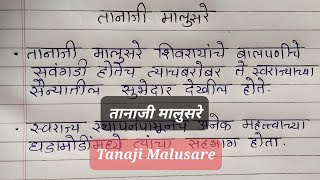 तानाजी मालुसरे
• तानाजी मालुसरे शिवरायांचे बालपणीचे
सवंगडी होतेच त्याचबरोबर ते स्वराज्याच्या
सैन्यातील सुभेदार देखील होते.
तानाजी मालुसरे
• स्वराज्य स्थापनेपासूनच अनेक महत्वाच्या
Tanaji Malusare
घडामोडींमध्ये त्यांचा सहभाग होता.